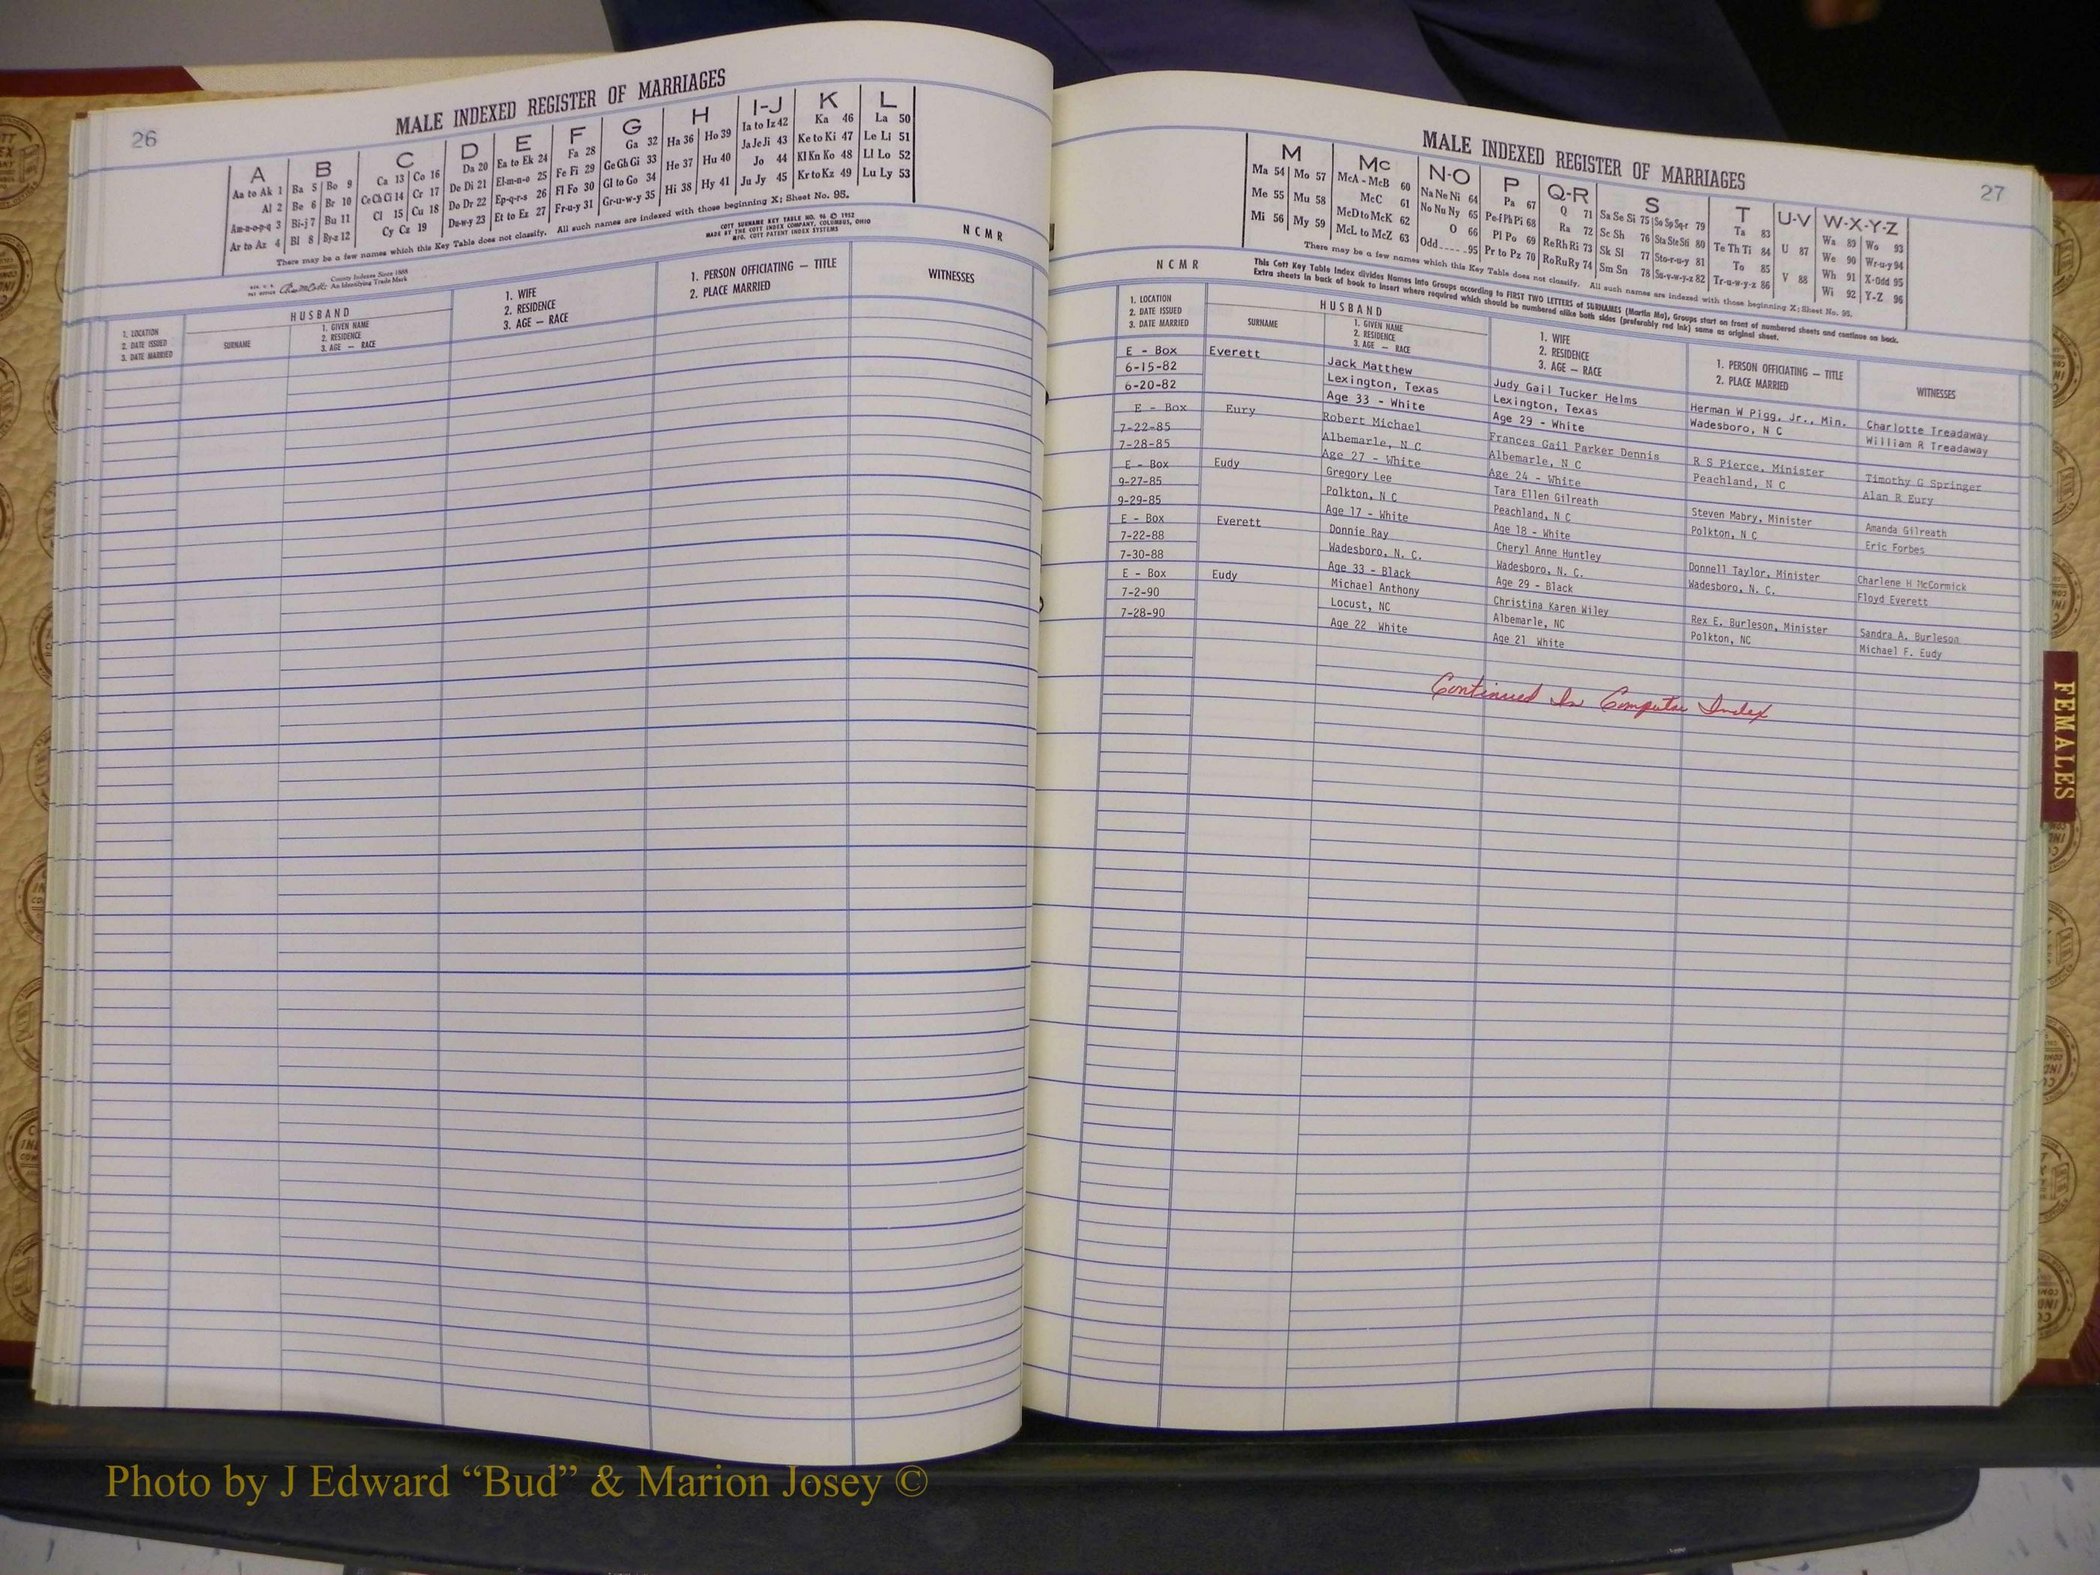 26
MALE INDEXED REGISTER OF MARRIAGES
A B C D E F G H I-J K L
Aa to Ak 1 Ba 5 Bo 9 Ca 13 Co 16 Da 20 Ea to Ek 24 Fa 28 Ga 32 Ha 36 Ho 39 Ia to Iz 42 Ka 46 La 50
Al 2 Be 6 Br 10 Ce Ch Ci 14 Cr 17 De Di 21 El-m-n-o 25 Fe Fi 29 Ge Gh Gi 33 He 37 Hu 40 Ja Je Ji 43 Ke to Ki 47 Le Li 51
Am-n-o-p-q 3 Bi-j 7 Bu 11 Cl 15 Cu 18 Do Dr 22 Ep-q-r-s 26 Fl Fo 30 Gl to Go 34 Hi 38 Hy 41 Jo 44 Kl Kn Ko 48 Ll Lo 52
Ar to Az 4 Bl 8 By-z 12 Cy Cz 19 Du-w-y 23 Et to Ez 27 Fr-u-y 31 Gr-u-w-y 35 Ju Jy 45 Kr to Kz 49 Lu Ly 53
There may be a few names which this Key Table does not classify. All such names are indexed with those beginning X; Sheet No. 95.
County Indexes Since 1888
An Identifying Trade Mark
COTT SURNAME KEY TABLE NO. 96 © 1952
MADE BY THE COTT INDEX COMPANY, COLUMBUS, OHIO
MFG. COTT PATENT INDEX SYSTEMS
N C M R
1. LOCATION
2. DATE ISSUED
3. DATE MARRIED
HUSBAND
SURNAME
1. GIVEN NAME
2. RESIDENCE
3. AGE — RACE
1. WIFE
2. RESIDENCE
3. AGE — RACE
1. PERSON OFFICIATING — TITLE
2. PLACE MARRIED
WITNESSES
MALE INDEXED REGISTER OF MARRIAGES
27
M Mc N-O P Q-R S T U-V W-X-Y-Z
Ma 54 Mo 57 McA - McB 60 Na Ne Ni 64 Pa 67 Q 71 Sa Se Si 75 So Sp Sq-r 79 Ta 83 U 87 Wa 89 Wo 93
Me 55 Mu 58 McC 61 No Nu Ny 65 Pe-f Ph Pi 68 Ra 72 Sc Sh 76 Sta Ste Sti 80 Te Th Ti 84 V 88 We 90 Wr-u-y 94
Mi 56 My 59 McD to McK 62 O 66 Pl Po 69 Re Rh Ri 73 Sk Sl 77 Sto-r-u-y 81 To 85 Wh 91 X-Odd 95
McL to McZ 63 Odd 95 Pr to Pz 70 Ro Ru Ry 74 Sm Sn 78 Su-v-w-y-z 82 Tr-u-w-y-z 86 Wi 92 Y-Z 96
There may be a few names which this Key Table does not classify. All such names are indexed with those beginning X; Sheet No. 95.
N C M R
This Cott Key Table Index divides Names into Groups according to FIRST TWO LETTERS of SURNAMES (Martin Ma), Groups start on front of numbered sheets and continue on back.
Extra sheets in back of book to insert where required which should be numbered alike both sides (preferably red ink) same as original sheet.
1. LOCATION
2. DATE ISSUED
3. DATE MARRIED
HUSBAND
SURNAME
1. GIVEN NAME
2. RESIDENCE
3. AGE — RACE
1. WIFE
2. RESIDENCE
3. AGE — RACE
1. PERSON OFFICIATING — TITLE
2. PLACE MARRIED
WITNESSES
E - Box Everett Jack Matthew Judy Gail Tucker Helms Herman W Pigg, Jr., Min. Charlotte Treadaway
6-15-82 Lexington, Texas Lexington, Texas Wadesboro, N C William R Treadaway
6-20-82 Age 33 - White Age 29 - White
E - Box Eury Robert Michael Frances Gail Parker Dennis R S Pierce, Minister Timothy G Springer
7-22-85 Albemarle, N C Albemarle, N C Peachland, N C Alan R Eury
7-28-85 Age 27 - White Age 24 - White
E - Box Eudy Gregory Lee Tara Ellen Gilreath Steven Mabry, Minister Amanda Gilreath
9-27-85 Polkton, N C Peachland, N C Polkton, N C Eric Forbes
9-29-85 Age 17 - White Age 18 - White
E - Box Everett Donnie Ray Cheryl Anne Huntley Donnell Taylor, Minister Charlene H McCormick
7-22-88 Wadesboro, N. C. Wadesboro, N. C. Wadesboro, N. C. Floyd Everett
7-30-88 Age 33 - Black Age 29 - Black
E - Box Eudy Michael Anthony Christina Karen Wiley Rex E. Burleson, Minister Sandra A. Burleson
7-2-90 Locust, NC Albemarle, NC Polkton, NC Michael F. Eudy
7-28-90 Age 22 White Age 21 White
Continued In Computer Index
FEMALES
Photo by J Edward “Bud” & Marion Josey ©